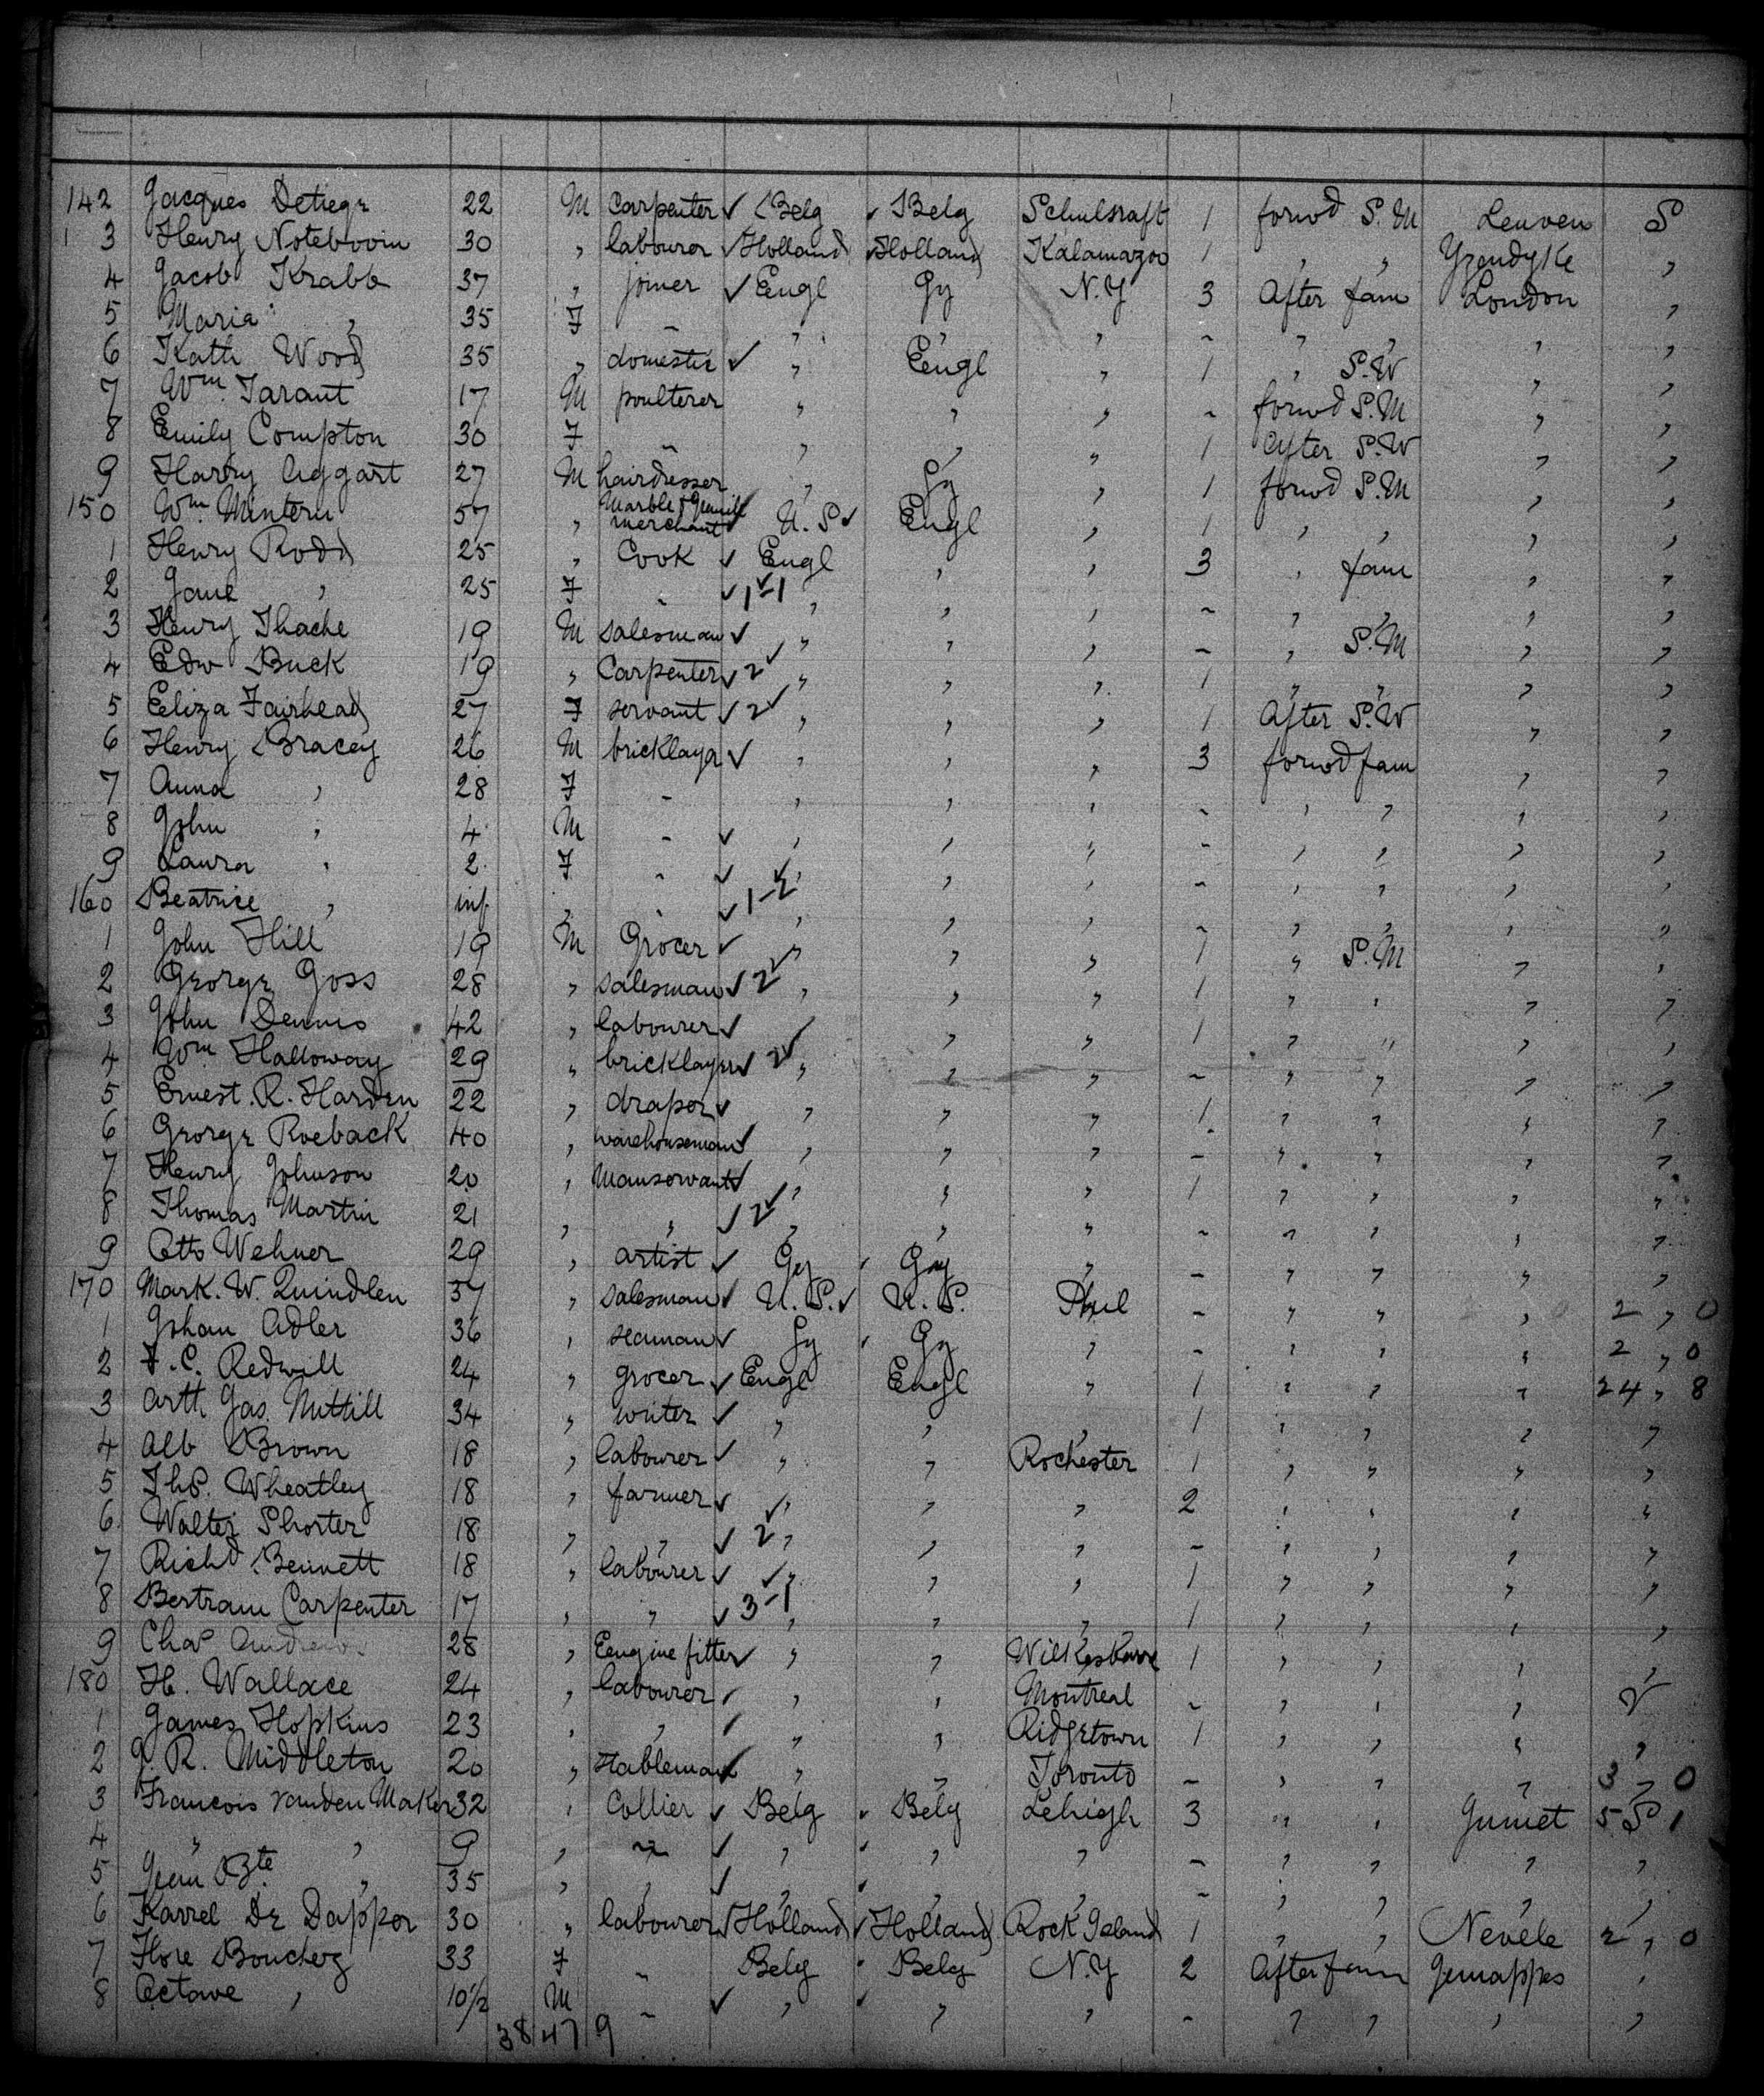 142 Jacques Detiege 22 M Carpenter ✓ Belg ✓ Belg 1 forwd S.M Leuven S
3 Henry Noteboom 30 " labourer ✓ Holland Holland Kalamazoo 1 " " Yzendyke "
4 Jacob Krabb 37 " joiner ✓ Engl Gy N.Y 3 After fam London "
5 Maria " 35 F - " " " - " " " "
6 Kath Wood 35 " domestic ✓ " Engl " 1 " S.W " "
7 Wm. Tarant 17 M poulterer " " " - forwd S.M " "
8 Emily Compton 30 F - " " " 1 After S.W " "
9 Harry Aggart 27 M hairdresser " Gy " 1 forwd S.M " "
150 Wm. Mintern 57 " Marble & merchant ✓ U.S ✓ Engl " 1 " " " "
1 Henry Rodd 25 " Cook ✓ Engl " " 3 " fam " "
2 Jane " 25 F - ✓ 1-1 " " " - " " " "
3 Henry Thache 19 M salesman ✓ " " " - " S.M " "
4 Edw Buck 19 " Carpenter ✓ 2 " " " 1 " " " "
5 Eliza Fairhead 27 F servant ✓ 2 " " " 1 After S.W " "
6 Henry Bracey 26 M bricklayer ✓ " " " 3 forwd fam " "
7 Anna " 28 F - " " " - " " " "
8 John " 4 M - ✓ " " " - " " " "
9 Laura " 2 F - ✓ " " " - " " " "
160 Beatrice " inf " - ✓ 1-2 " " " - " " " "
1 John Hill 19 M Grocer ✓ " " " 1 " S.M " "
2 George Goss 28 " salesman ✓ 2 " " " 1 " " " "
3 John Dennis 42 " labourer ✓ " " 1 " " " "
4 Wm Halloway 29 " bricklayer ✓ 2 " " " - " " " "
5 Ernest. R. Harden 22 " draper ✓ " " " 1 " " " "
6 George Roeback 40 " warehouseman ✓ " " " - " " " "
7 Henry Johnson 20 " Manservant ✓ " " " 1 " " " "
8 Thomas Martin 21 " " ✓ 2 " " " - " " " "
9 Otto Wehner 29 " artist ✓ Gy ✓ Gy " - " " " "
170 Mark. W. Quindlen 37 " salesman ✓ U.S. ✓ U.S. Phil - " " " 2 " 0
1 Johan Adler 36 " seaman ✓ Gy ✓ Gy " - " " " 2 " 0
2 F. C. Redwill 24 " grocer ✓ Engl Engl " 1 " " " 24 " 8
3 Arth. Jas. 34 " writer ✓ " " " 1 " " " "
4 Alb Brown 18 " labourer ✓ " " Rochester 1 " " " "
5 Ths. Wheatley 18 " farmer ✓ " " " 2 " " " "
6 Walter Shorter 18 " " ✓ 2 " " " - " " " "
7 Richd. Bennett 18 " labourer ✓ " " " 1 " " " "
8 Bertram Carpenter 17 " " ✓ 3-1 " " " 1 " " " "
9 Chas Andrews 28 " Engine fitter ✓ " " Wilkesbarre 1 " " " "
180 H. Wallace 24 " labourer ✓ " " Montreal - " " "
1 James Hopkins 23 " " ✓ " " Ridgetown 1 " " " "
2 J. R. Middleton 20 " stableman ✓ " " Toronto - " " " 3 " 0
3 Francois Vanden Maker 32 " Collier ✓ Belg ✓ Belg Lehigh 3 " " 5 S 1
4 " " 9 " - ✓ " ✓ " " - " " " "
5 Jean Bte. " 35 " " ✓ " ✓ " " - " " " "
6 Karrel De Dapper 30 " labourer ✓ Holland ✓ Holland Rock Island 1 " " Nevele 2 " 0
7 Flore Boucherz 33 F - Belg ✓ Belg N.Y 2 After fam Jemappes "
8 Octave " 10½ M - ✓ " ✓ " " - " " " "
38 47 9